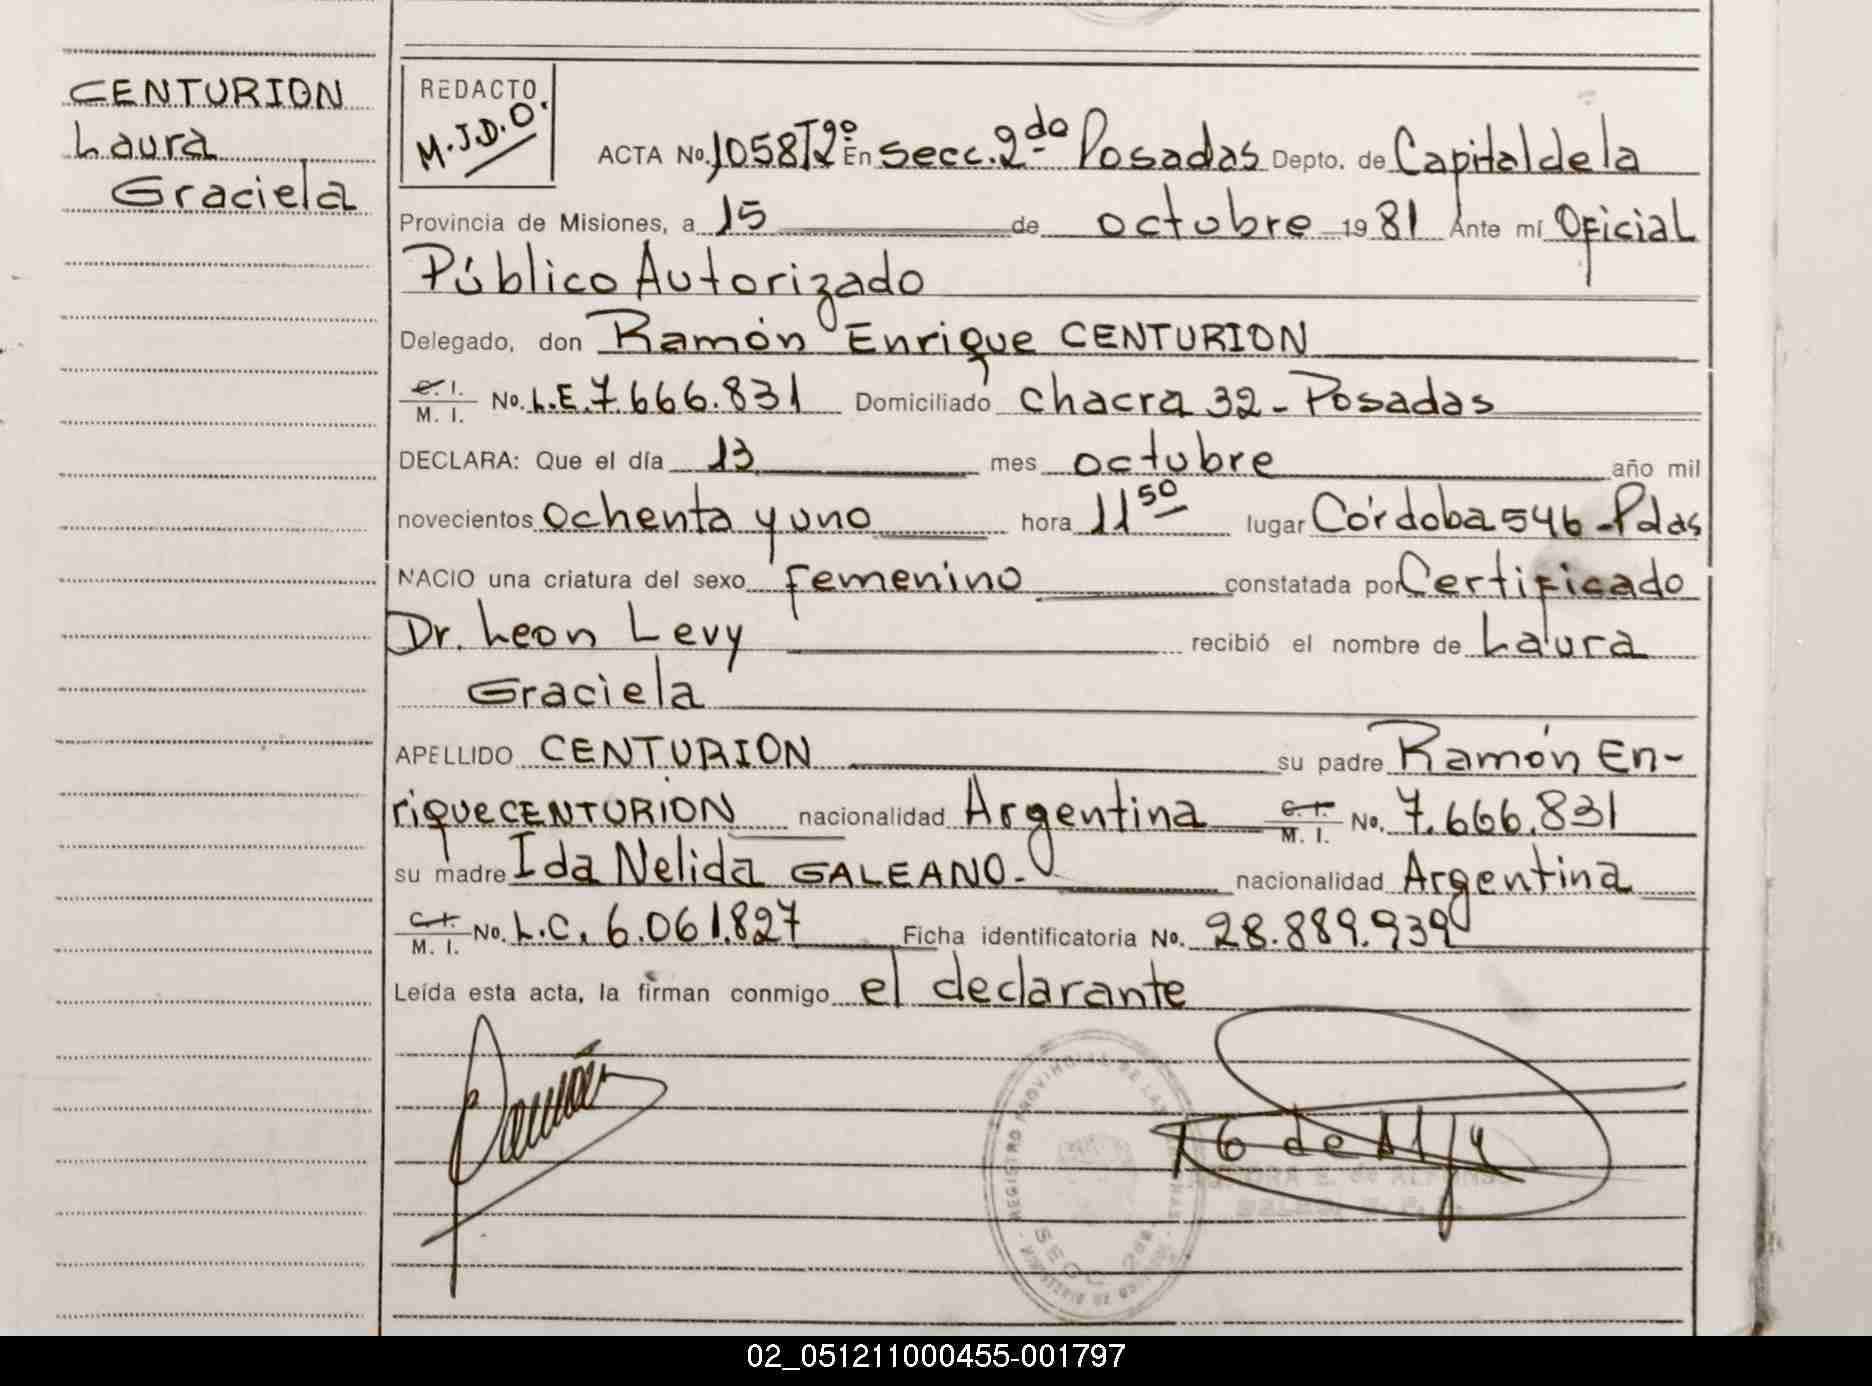 CENTURION
Laura
Graciela
REDACTO
M.J.D.O.
ACTA No. 1058 T2º En secc. 2do Posadas Depto. de Capital de la
Provincia de Misiones, a 15 de octubre 1981 Ante mí Oficial
Público Autorizado
Delegado, don Ramón Enrique CENTURION
C. I.
M. I. No. L.E. 7.666.831 Domiciliado chacra 32 - Posadas
DECLARA: Que el día 13 mes octubre año mil
novecientos ochenta y uno hora 11 50 lugar Córdoba 546 - Pdas
NACIO una criatura del sexo femenino constatada por Certificado
Dr. Leon Levy recibió el nombre de Laura
Graciela
APELLIDO CENTURION su padre Ramón En-
rique CENTURION nacionalidad Argentina C. I. M. I. No. 7.666.831
su madre Ida Nelida GALEANO - nacionalidad Argentina
C. I.
M. I. No. L.C. 6.061.827 Ficha identificatoria No. 28.889.939
Leída esta acta, la firman conmigo el declarante
REGISTRO PROVINCIAL DE LAS
SECC. 2da.
02_051211000455-001797